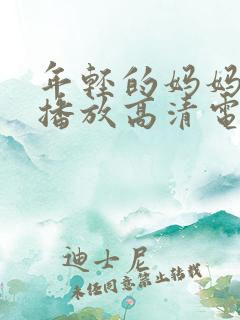 年轻的妈妈
播放高清电
迪士尼
未经同意禁止转载